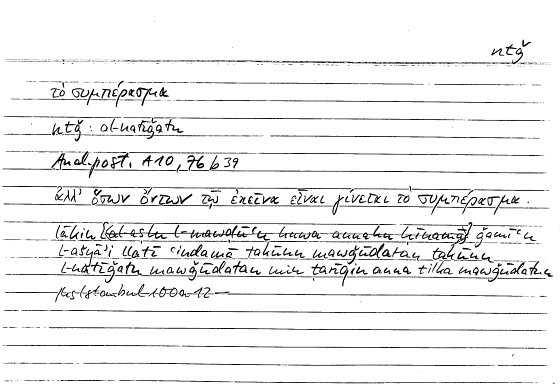 ntǧ
τὸ συμπέρασμα
ntǧ : al-natīǧatu
Anal. post. A 10, 76 b 39
ἀλλ' ὅσων ὄντων τῷ ἐκεῖνα εἶναι γίνεται τὸ συμπέρασμα.
lākin [al-aṣlu l-mawḍūʿu huwa annahu ḥīnamā] ǧamīʿu
l-ašyāʾi llatī ʿindamā takūnu mawǧūdatan takūnu
l-natīǧatu mawǧūdatan min ṭarīqin anna tilka mawǧūdatun
Istanbul 100a 12